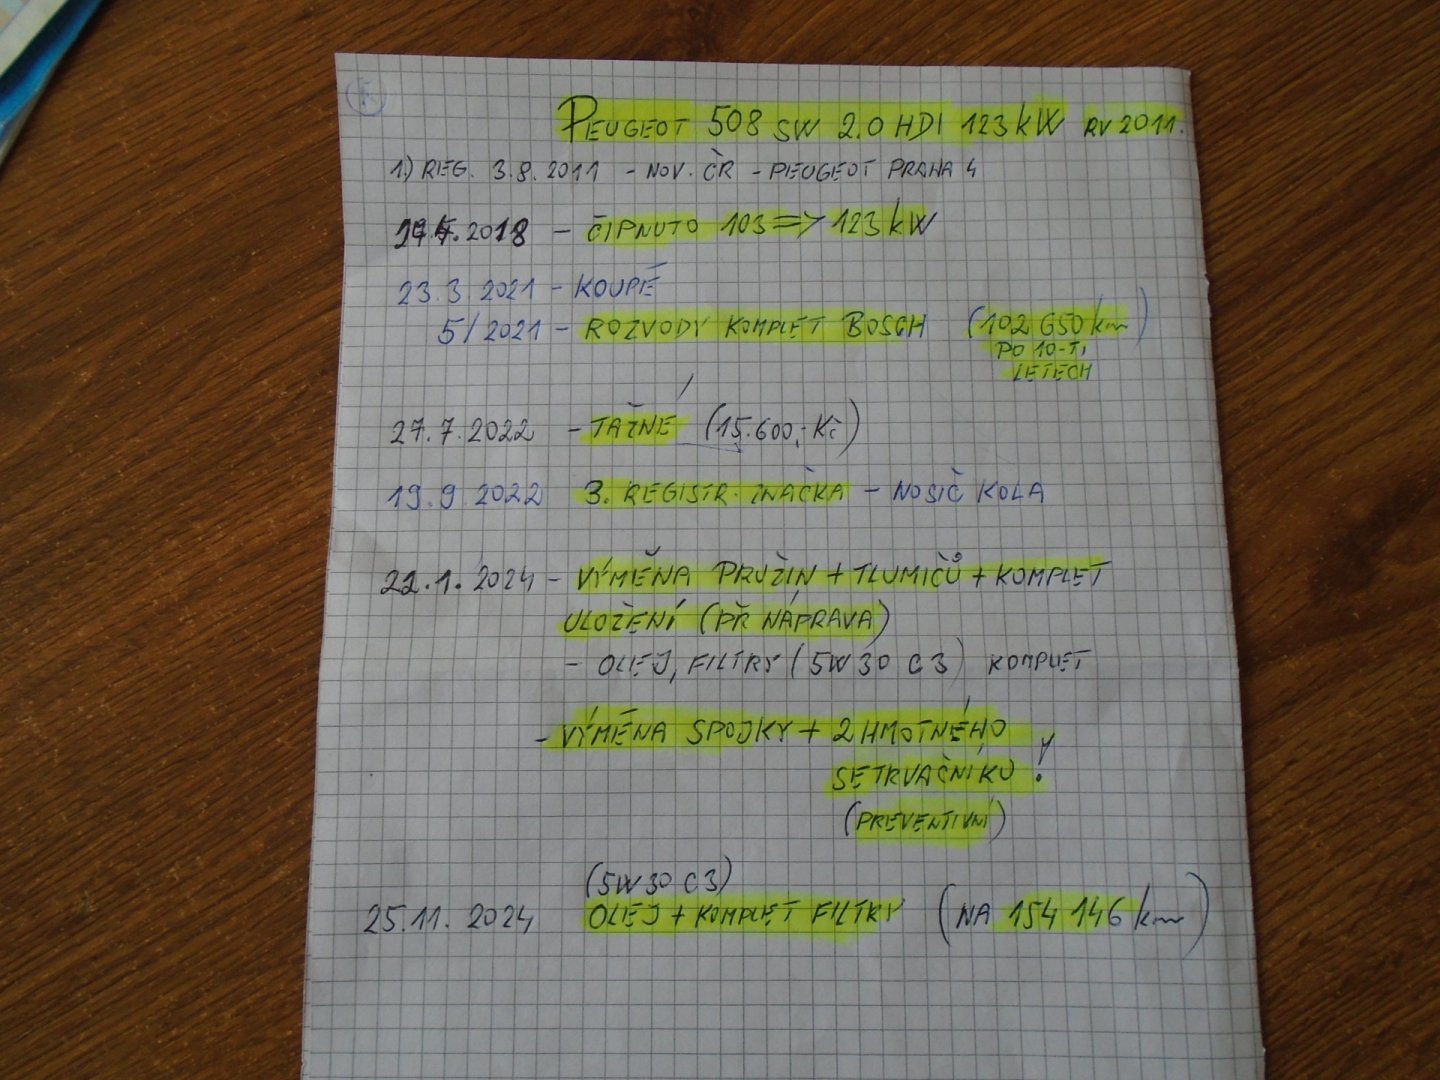 PEUGEOT 508 SW 2.0 HDI 123 kW RV 2011.
1.) REG. 3.8.2011 - NOV. ČR - PEUGEOT PRAHA 4
2018 - ČIPNUTO 103 => 123 kW
23.3.2021 - KOUPĚ
5/2021 - ROZVODY KOMPLET BOSCH (102 650 km)
PO 10-TI
LETECH
27.7.2022 - TAŽNÉ (15.600,- Kč)
19.9 2022 3. REGISTR. ZNAČKA - NOSIČ KOLA
22.1.2024 - VÝMĚNA PRUŽIN + TLUMIČŮ + KOMPLET
ULOŽENÍ (PŘ NÁPRAVA)
- OLEJ, FILTRY (5W30 C3) KOMPLET
- VÝMĚNA SPOJKY + 2 HMOTNÉHO
SETRVAČNÍKU !
(PREVENTIVNÍ)
(5W30 C3)
25.11.2024 OLEJ + KOMPLET FILTRY (NA 154 146 km)